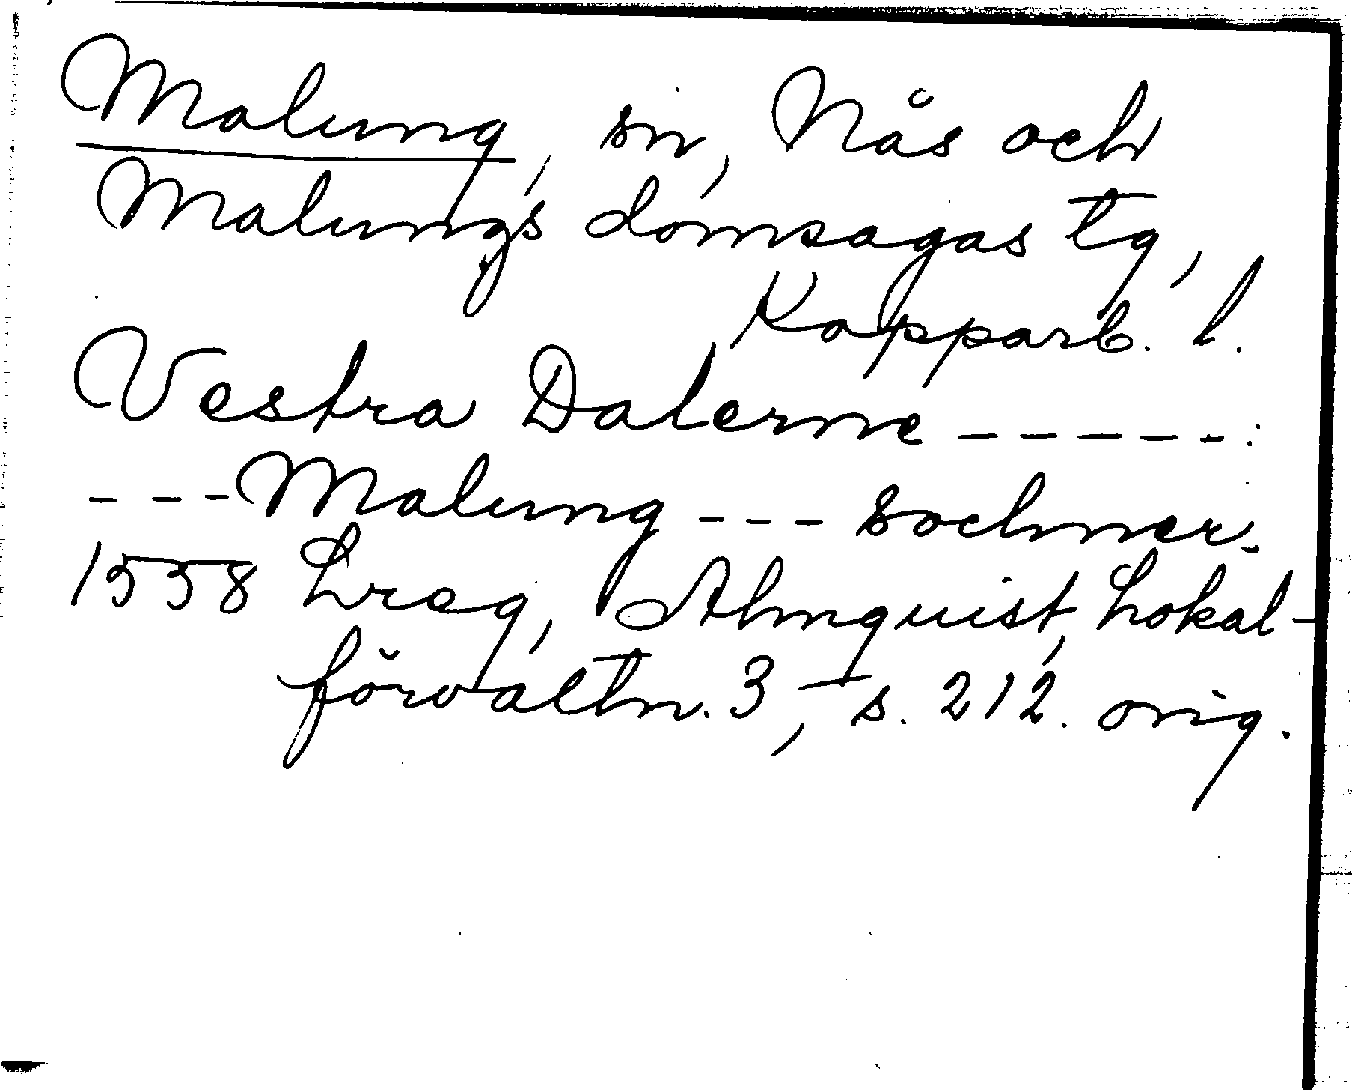 Malung, sn, Nås och
Malungs domsagas tg,
Kopparb. l.
Vestra Dalerne -----:
---Malung --- sochner.
1558 Lreg, Almquist, Lokal-
förvaltn. 3, s. 212. orig.